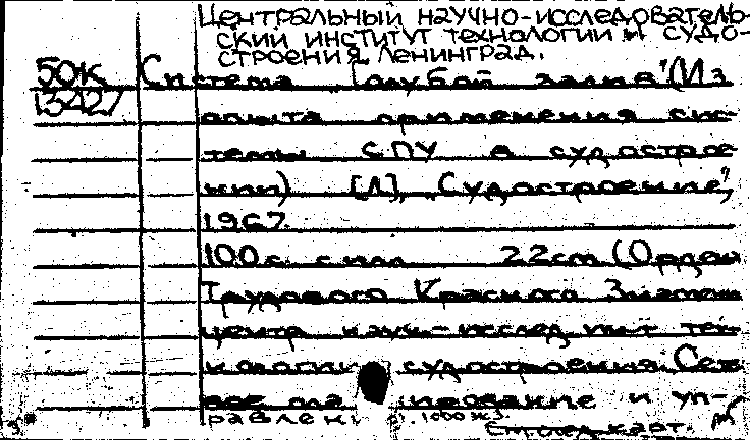 Центральный научно-исследователь-
ский институт технологии и судо-
строения, Ленинград.
50К Система "Голубой залив" (Из
13427 опыта применения сис-
темы СПУ в судострое-
нии) [Л], "Судостроение",
1967.
100 с. с илл. 22см (Ордена
Трудового Красного Знамени
центр. науч.-исслед. ин-т тех-
нологии судостроения. Сете-
вое пла ирование и уп-
равлени 1000 экз.
См. след. карт.